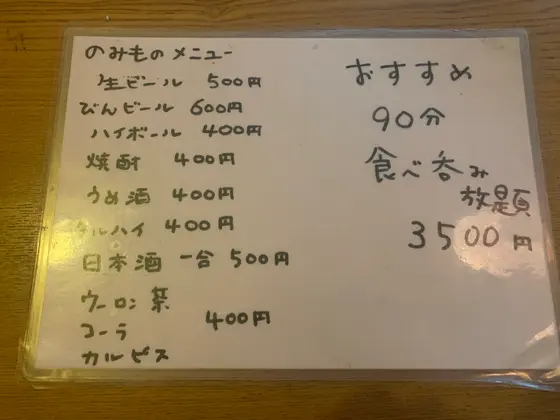 のみものメニュー
生ビール 500円
びんビール 600円
ハイボール 400円
焼酎 400円
うめ酒 400円
タルハイ 400円
日本酒 一合 500円
ウーロン茶
コーラ 400円
カルピス
おすすめ
90分
食べ呑み
放題
3500円